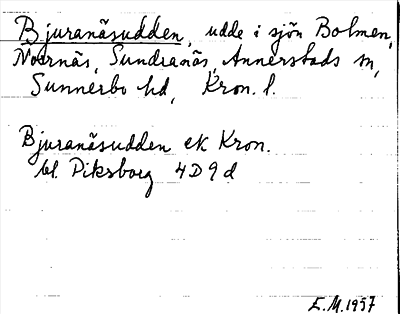 Bjuranäsudden, udde i sjön Bolmen,
Norrnäs, Sundranäs, Annerstads sn,
Sunnerbo hd, Kron. l.
Bjuranäsudden ek Kron.
bl. Piksborg 4D9d
E.M. 1957